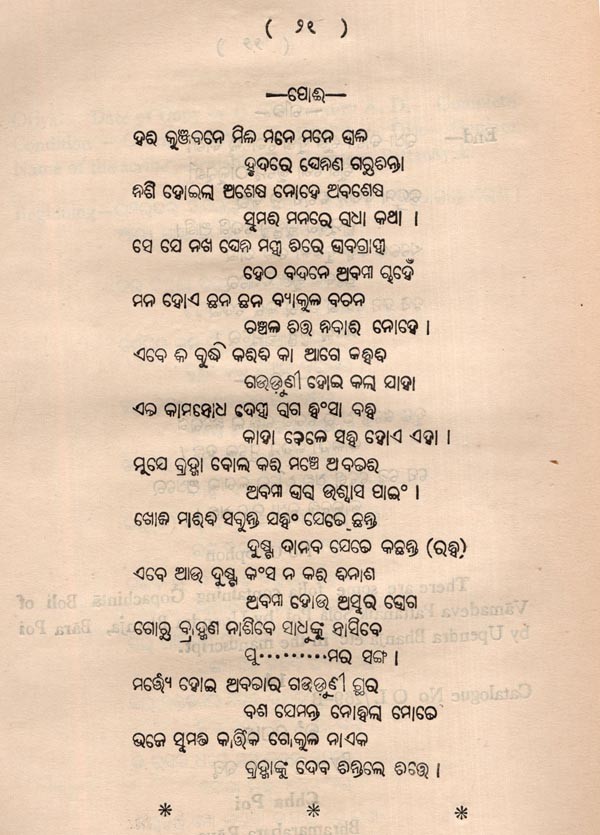 ( ୨୧ )
—ପୋଇ—
ହରି କୁଞ୍ଜବନେ ମିଳି ମନେ ମନେ ଭାଳି
ହୃଦରେ ଘେନିଣ ଗରୁଚିନ୍ତା
ନିଶି ହୋଇଲା ଅଶେଷ ନୋହେ ଅବଶେଷ
ସୁମରି ମନରେ ରାଧା କଥା ।
ସେ ଯେ ନଖ ଘେନି ମହୀ ଚିରେ ଭାବଗ୍ରାହୀ
ହେଠ ବଦନେ ଅବନୀ ଚାହିଁ
ମନ ହୋଏ ଛନ ଛନ ବ୍ୟାକୁଳ ବଚନ
ଚଞ୍ଚଳ ଚିତ୍ତ ନିବାର ନୋହେ ।
ଏବେ କି ବୁଦ୍ଧି କରିବି କା ଆଗେ କହିବି
ଗଉଡୁଣୀ ହୋଇ କଲା ଯାହା
ଏତ କାମକ୍ରୋଧ ଦେହୀ ରାଗ ହିଂସା ବହି
କାହା ଦେହେ ସହି ହୋଏ ଏହା ।
ମୁଁସେ ବ୍ରହ୍ମା ବୋଲ କରି ମଞ୍ଚେ ଅବତରି
ଅବନୀ ଭାରା ଉଶ୍ୱାସ ପାଇଂ ।
ଖୋଜି ମାରିବି ସବୁନ୍ତି ଯହିଂ ଯେତେ ଛନ୍ତି
ଦୁଷ୍ଟ ଦାନବ ଯେତେ କହଛନ୍ତି (ରହି)
ଏବେ ଆଉ ଦୁଷ୍ଟ କଂସ ନ କରି ବିନାଶ
ଅବନୀ ହୋଉ ଅସୁର ଭୋଗ
ଗୋରୁ ବ୍ରାହ୍ମଣ ନାଶିବେ ସାଧୁଙ୍କୁ ହାସିବେ
ପୁ..........ମର ସଙ୍ଗ ।
ମର୍ତ୍ତ୍ୟେ ହୋଇ ଅବତାର ଗଉଡୁଣୀ ଛାର
ବଶ ଯେମନ୍ତ ନୋହିଲା ମୋତେ
ଭଜେ ସୁମତି କାର୍ତ୍ତିକ ଗୋକୁଳ ନାଏକ
ବ୍ରହ୍ମାଙ୍କୁ ଦେବ ଚିନ୍ତିଲେ ଚିତ୍ତେ ।
* * *